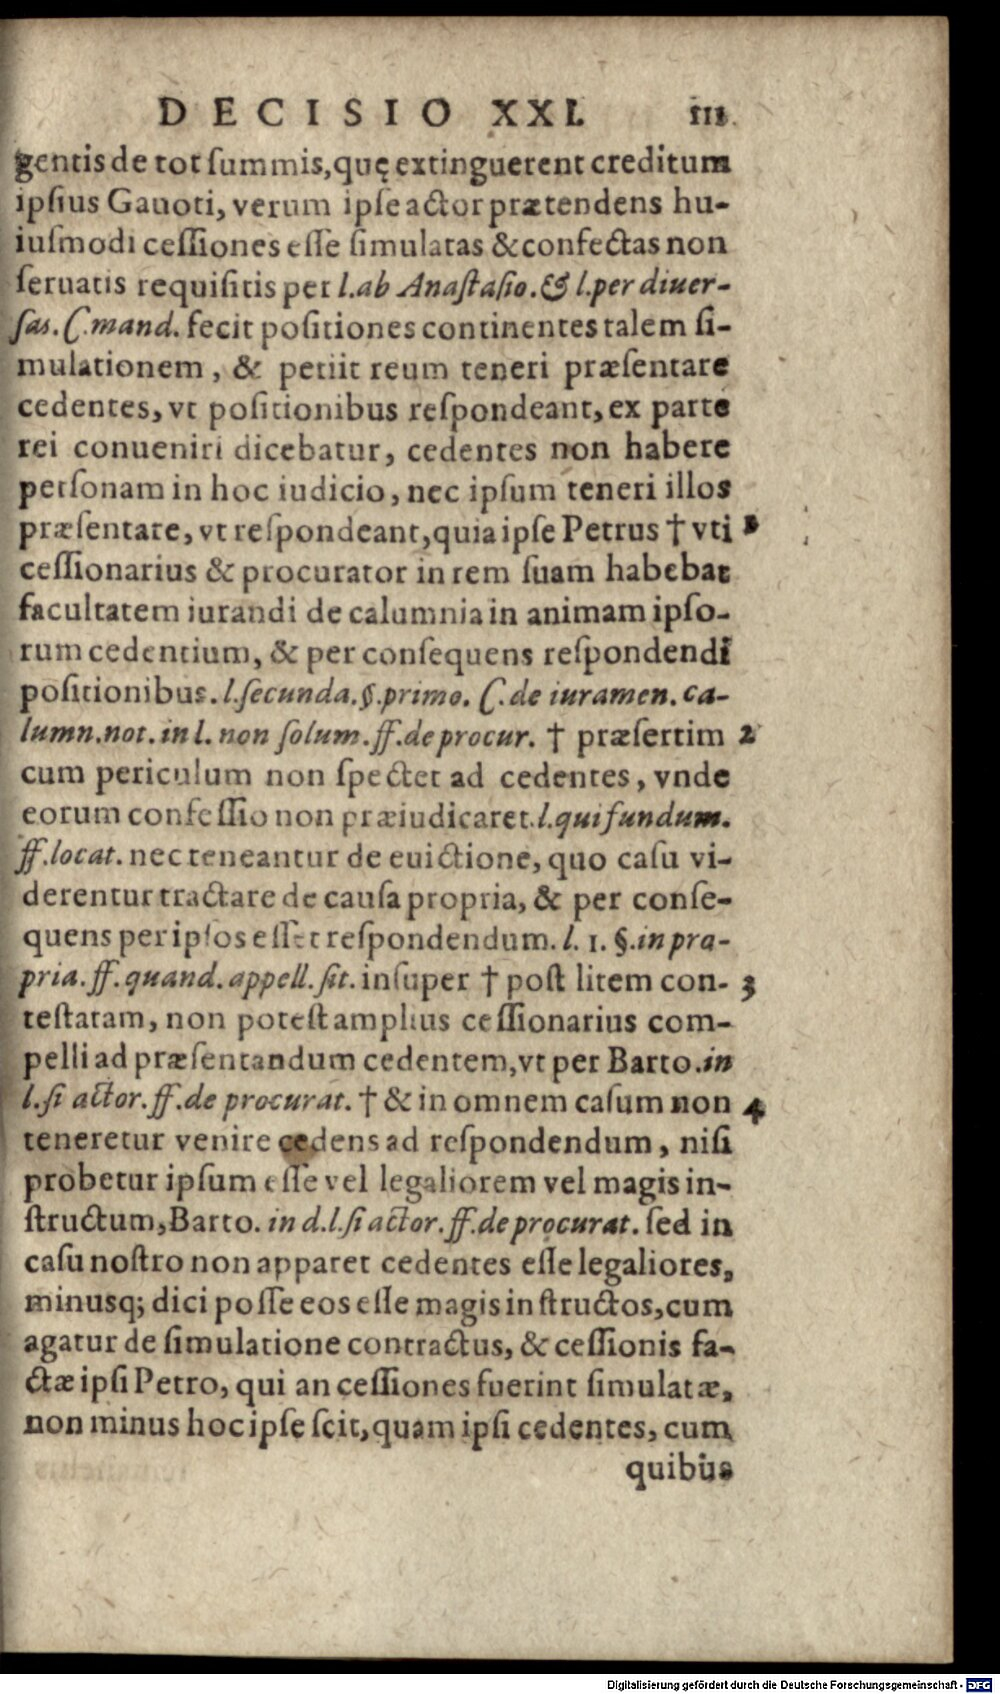 DECISIO XXI. 111
gentis de tot summis, quę extinguerent creditum
ipsius Gauoti, verum ipse actor prætendens hu-
iusmodi cessiones esse simulatas & confectas non
seruatis requisitis per l. ab Anastasio. & l. per diuer-
sas. C. mand. fecit positiones continentes talem si-
mulationem, & petiit reum teneri præsentare
cedentes, vt positionibus respondeant, ex parte
rei conueniri dicebatur, cedentes non habere
personam in hoc iudicio, nec ipsum teneri illos
præsentare, vt respondeant, quia ipse Petrus † vti
cessionarius & procurator in rem suam habebat
facultatem iurandi de calumnia in animam ipso-
rum cedentium, & per consequens respondendi
positionibus. l. secunda. §. primo. C. de iuramen. ca-
lumn. not. in l. non solum. ff. de procur. † præsertim 2
cum periculum non spectet ad cedentes, vnde
eorum confessio non præiudicaret. l. qui fundum.
ff. locat. nec teneantur de euictione, quo casu vi-
derentur tractare de causa propria, & per conse-
quens per ipsos esset respondendum. l. 1. §. in pra-
pria. ff. quand. appell. sit. insuper † post litem con- 3
testatam, non potest amplius cessionarius com-
pelli ad præsentandum cedentem, vt per Barto. in
l. si actor. ff. de procurat. † & in omnem casum non 4
teneretur venire cedens ad respondendum, nisi
probetur ipsum esse vel legaliorem vel magis in-
structum, Barto. in d. l. si actor. ff. de procurat. sed in
casu nostro non apparet cedentes esse legaliores,
minusq; dici posse eos esse magis instructos, cum
agatur de simulatione contractus, & cessionis fa-
ctæ ipsi Petro, qui an cessiones fuerint simulatæ,
non minus hoc ipse scit, quam ipsi cedentes, cum
quibus
Digitalisierung gefördert durch die Deutsche Forschungsgemeinschaft - DFG